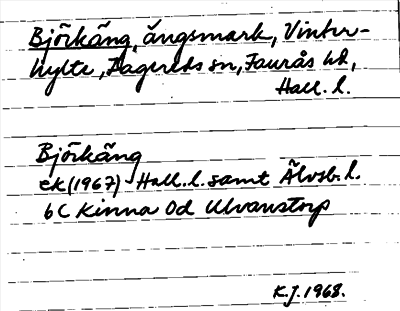 Björkäng, ängsmark, Vinter-
hylte, Dagereds sn, Faurås hd,
Hall. l.
Björkäng
ek (1967) Hall. l. samt Älvsb. l.
6C Kinna 0d Ulvanstorp
K.J. 1968.